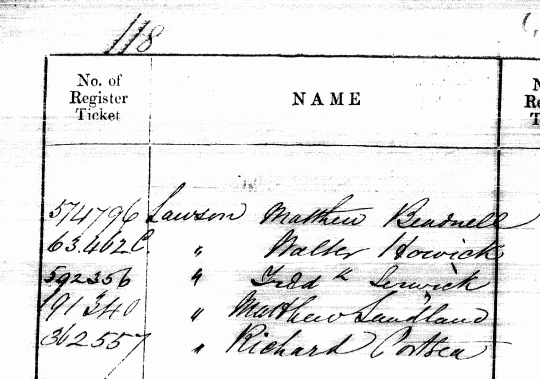 118
No. of Register Ticket NAME
574796 Lawson Matthew Beadnell
63.462 C. " Walter Howick
592356 " Fredk Lerwick
191340 " Matthew Sandland
362557 " Richard Portsea